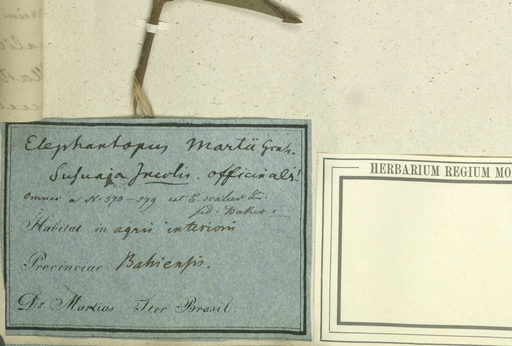 Elephantopus Martii Grah.
Susuaja Incolis. officinalis!
Omnes a No 570-579 est E. scaber Lin
fid: Baker
Habitat in agris interioris
Provinciae Bahiensis.
Dr Martius Iter Brasil.
HERBARIUM REGIUM MO